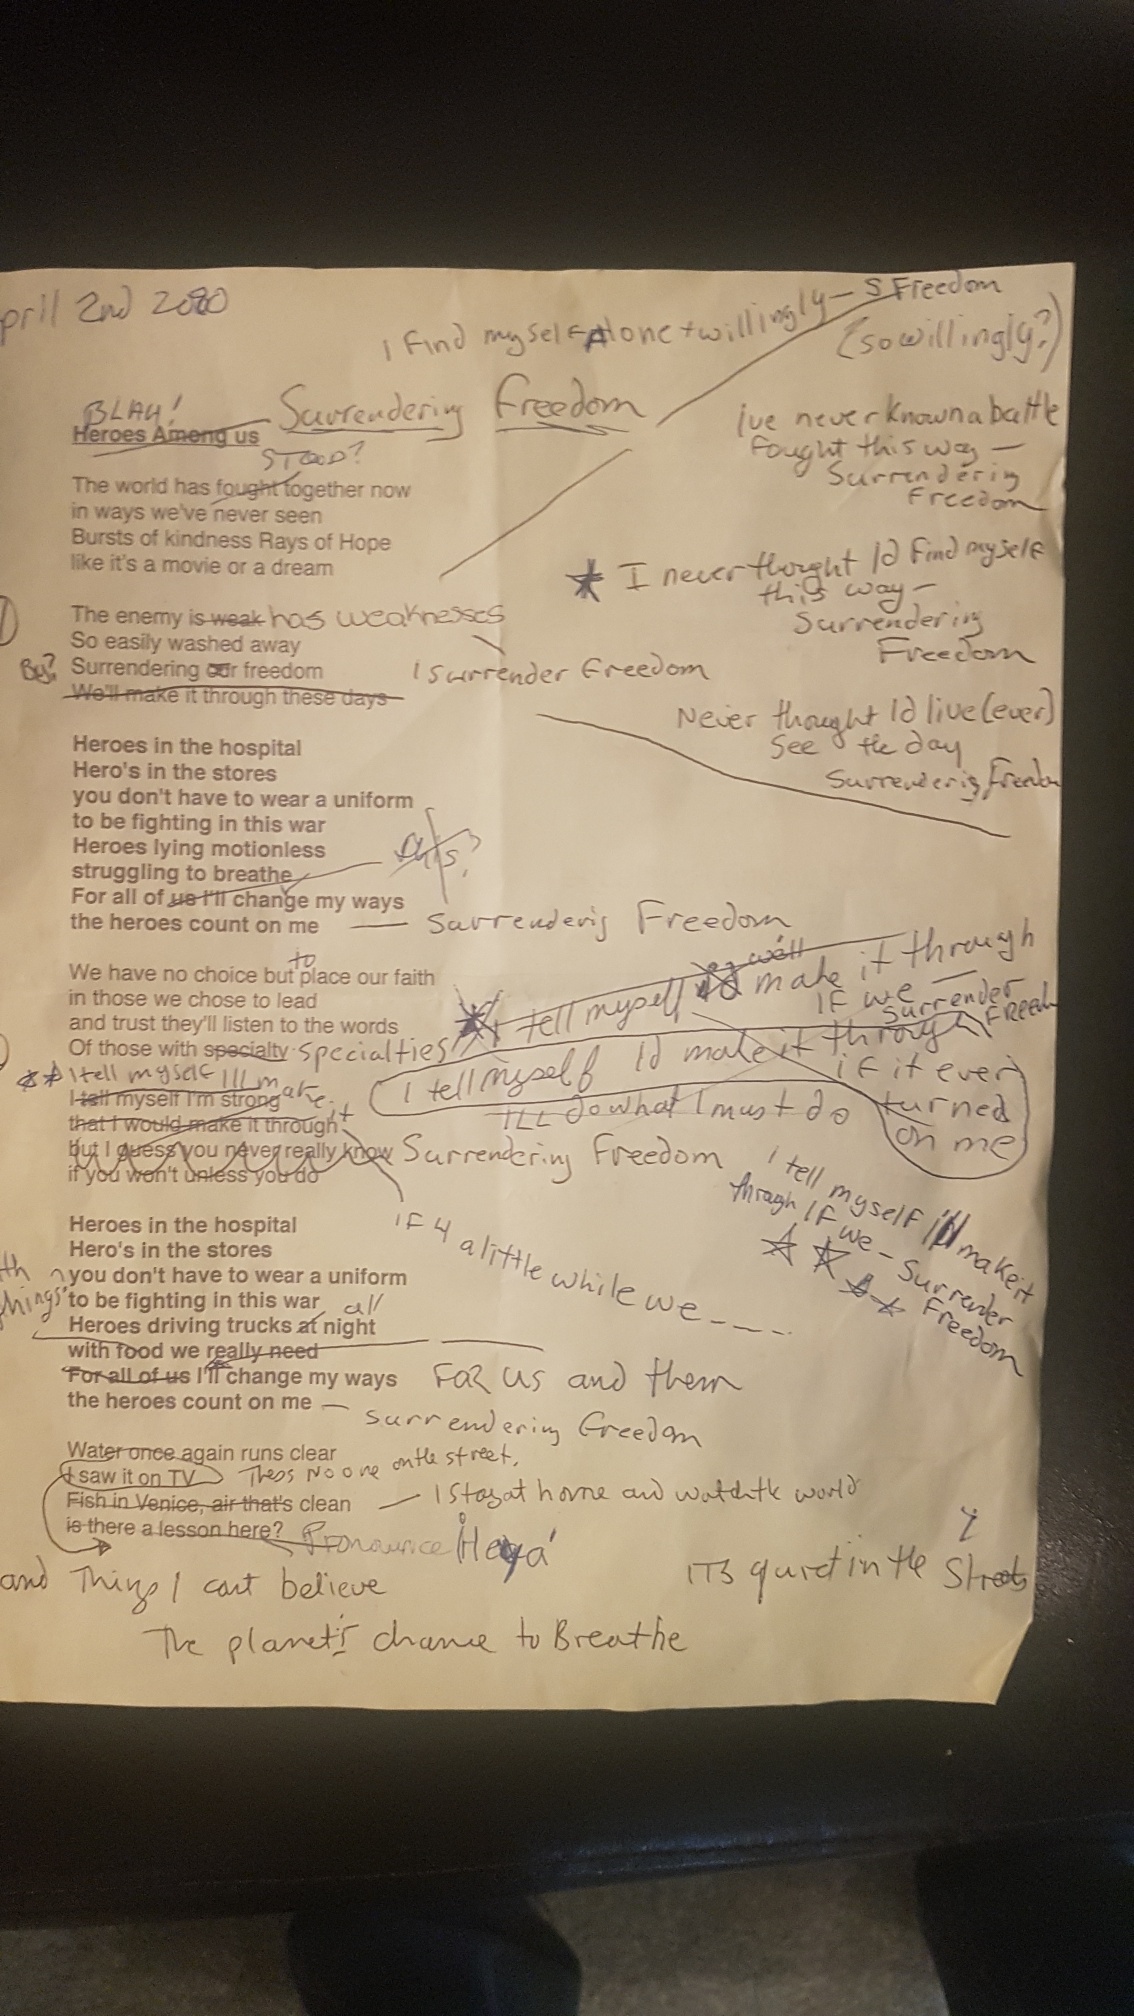 pril 2nd 2020
I find myself Alone + willingly — S Freedom
(so willingly?)
BLAH!
Heroes Among us
Surrendering Freedom
STOOD?
The world has fought together now
in ways we've never seen
Bursts of kindness Rays of Hope
like it's a movie or a dream
Ive never known a battle
Fought this way —
Surrenderig
Freedom
I never thought Id Find myself
this way —
Surrendering
Freedom
The enemy is weak has weaknesses
So easily washed away
Surrendering our freedom
I Surrender Freedom
We'll make it through these days
Never thought Id live (ever)
See the day
Surrenderig Freedom
Heroes in the hospital
Hero's in the stores
you don't have to wear a uniform
to be fighting in this war
Heroes lying motionless
this?
struggling to breathe
For all of us I'll change my ways
the heroes count on me — Surrenderig Freedom
to
We have no choice but place our faith
in those we chose to lead
and trust they'll listen to the words
Of those with specialty specialties
I tell myself well make it through
IF we —
Surrender
Freedom
I tell myself Id make it through
if it ever
turned
on me
ILL do what I must do
I tell myself Ill make it
I tell myself I'm strong
that I would make it through
but I guess you never really know
if you won't unless you do
Surrendering Freedom
IF 4 a little while we ----
I tell myself Ill make it
through IF we — Surrender
Freedom
Heroes in the hospital
Hero's in the stores
you don't have to wear a uniform
to be fighting in this war
all
Heroes driving trucks at night
with food we really need
For all of us I'll change my ways
FOR us and them
the heroes count on me —
surrendering Freedom
Water once again runs clear
I saw it on TV
Theres No one on the street,
Fish in Venice, air that's clean
— I Stay at home and watch the world
is there a lesson here?
Pronounce
and Things I cant believe
ITS quiet in the Streets
The planet's chance to Breathe